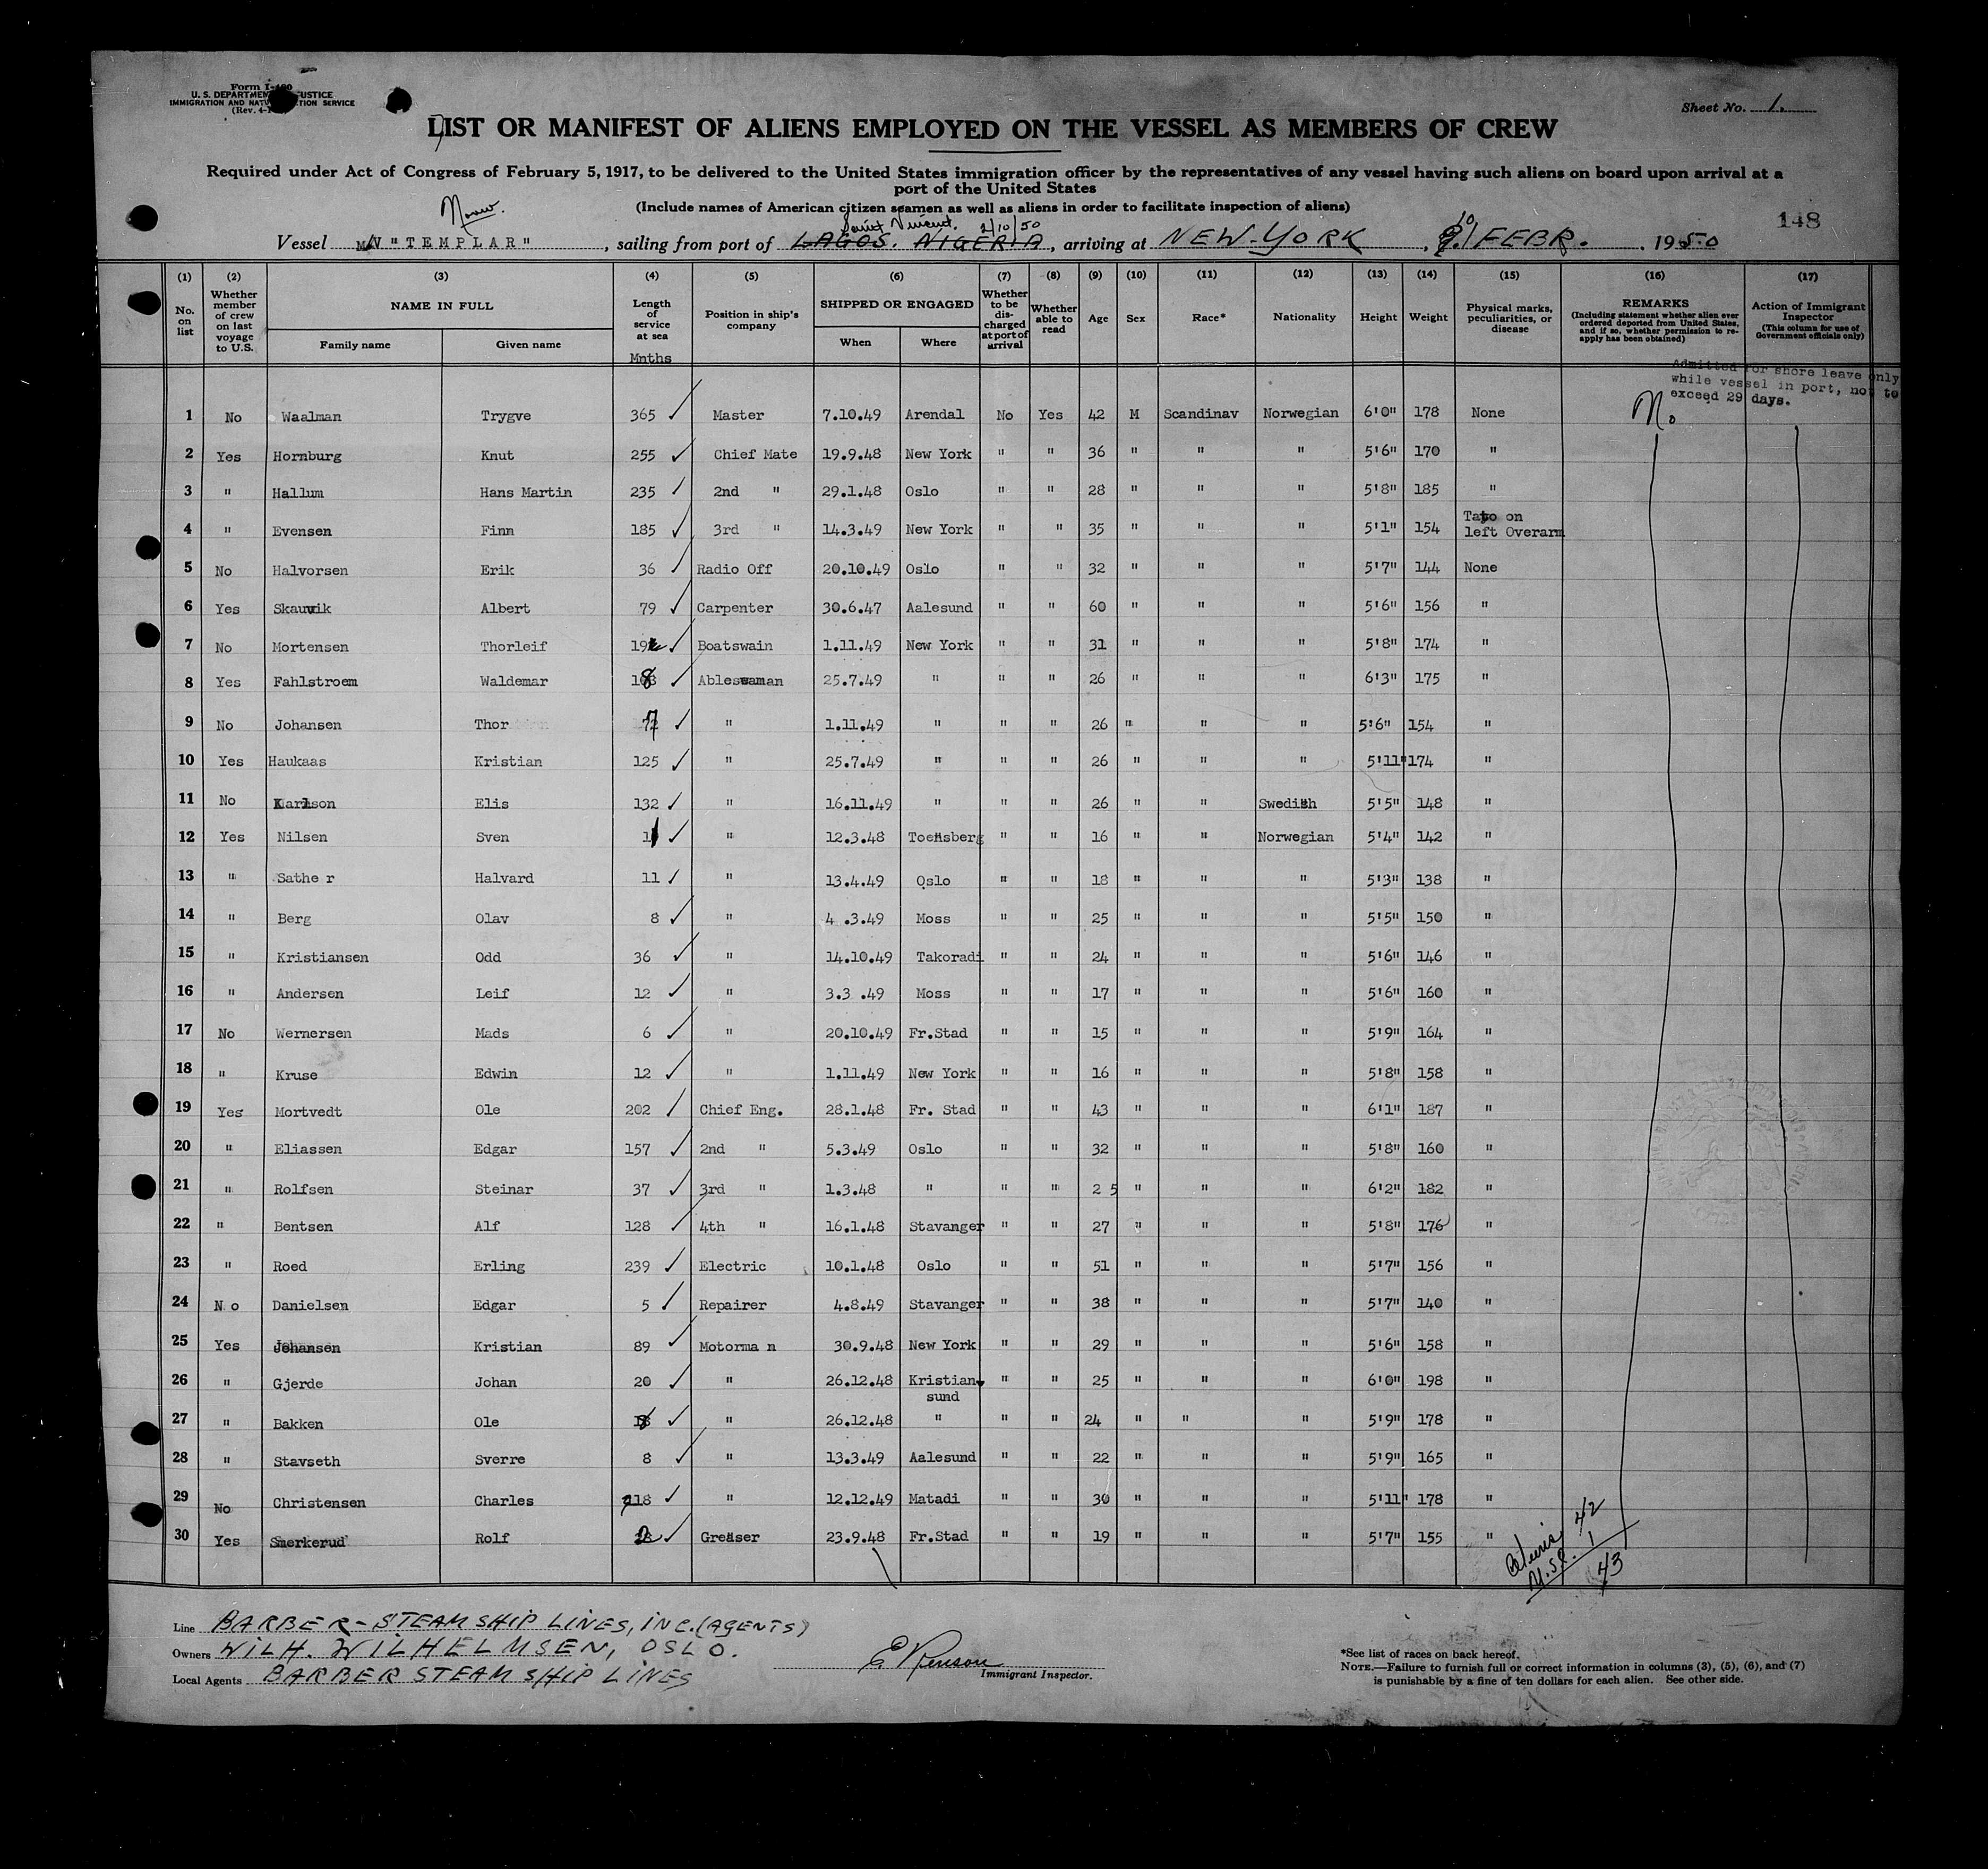 U. S. DEPARTMENT JUSTICE
IMMIGRATION AND SERVICE
Sheet No. 1.
LIST OR MANIFEST OF ALIENS EMPLOYED ON THE VESSEL AS MEMBERS OF CREW
Required under Act of Congress of February 5, 1917, to be delivered to the United States immigration officer by the representatives of any vessel having such aliens on board upon arrival at a
port of the United States
(Include names of American citizen seamen as well as aliens in order to facilitate inspection of aliens)
148
Saint Vincent. 2/10/50
Vessel M/V "TEMPLAR", sailing from port of LAGOS. NIGERIA, arriving at NEW-YORK, 10 FEBR. 1950
(1) (2) (3) (4) (5) (6) (7) (8) (9) (10) (11) (12) (13) (14) (15) (16) (17)
No. on list
Whether member of crew on last voyage to U.S.
NAME IN FULL
Family name Given name
Length of service at sea
Mnths
Position in ship's company
SHIPPED OR ENGAGED
When Where
Whether to be discharged at port of arrival
Whether able to read
Age
Sex
Race*
Nationality
Height
Weight
Physical marks, peculiarities, or disease
REMARKS
(Including statement whether alien ever ordered deported from United States, and if so, whether permission to reapply has been obtained)
Action of Immigrant Inspector
(This column for use of Government officials only)
Admitted for shore leave only
while vessel in port, not to
exceed 29 days.
1 No Waalman Trygve 365 Master 7.10.49 Arendal No Yes 42 M Scandinav Norwegian 6'0" 178 None No
2 Yes Hornburg Knut 255 Chief Mate 19.9.48 New York " " 36 " " " 5'6" 170 "
3 " Hallum Hans Martin 235 2nd " 29.1.48 Oslo " " 28 " " " 5'8" 185 "
4 " Evensen Finn 185 3rd " 14.3.49 New York " " 35 " " " 5'1" 154 Tato on left Overarm
5 No Halvorsen Erik 36 Radio Off 20.10.49 Oslo " " 32 " " " 5'7" 144 None
6 Yes Skauvik Albert 79 Carpenter 30.6.47 Aalesund " " 60 " " " 5'6" 156 "
7 No Mortensen Thorleif Boatswain 1.11.49 New York " " 31 " " " 5'8" 174 "
8 Yes Fahlstroem Waldemar Ableseaman 25.7.49 " " " 26 " " " 6'3" 175 "
9 No Johansen Thor " 1.11.49 " " " 26 " " " 5'6" 154 "
10 Yes Haukaas Kristian 125 " 25.7.49 " " " 26 " " " 5'11" 174 "
11 No Karlson Elis 132 " 16.11.49 " " " 26 " " Swedish 5'5" 148 "
12 Yes Nilsen Sven " 12.3.48 Toensberg " " 16 " " Norwegian 5'4" 142 "
13 " Sathe r Halvard 11 " 13.4.49 Oslo " " 18 " " " 5'3" 138 "
14 " Berg Olav 8 " 4 .3.49 Moss " " 25 " " " 5'5" 150 "
15 " Kristiansen Odd 36 " 14.10.49 Takoradi " " 24 " " " 5'6" 146 "
16 " Andersen Leif 12 " 3.3 .49 Moss " " 17 " " " 5'6" 160 "
17 No Wernersen Mads 6 " 20.10.49 Fr.Stad " " 15 " " " 5'9" 164 "
18 " Kruse Edwin 12 " 1.11.49 New York " " 16 " " " 5'8" 158 "
19 Yes Mortvedt Ole 202 Chief Eng. 28.1.48 Fr. Stad " " 43 " " " 6'1" 187 "
20 " Eliassen Edgar 157 2nd " 5.3.49 Oslo " " 32 " " " 5'8" 160 "
21 " Rolfsen Steinar 37 3rd " 1.3.48 " " " 2 5 " " " 6'2" 182 "
22 " Bentsen Alf 128 4th " 16.1.48 Stavanger " " 27 " " " 5'8" 176 "
23 " Roed Erling 239 Electric 10.1.48 Oslo " " 51 " " " 5'7" 156 "
24 N o Danielsen Edgar 5 Repairer 4.8.49 Stavanger " " 38 " " " 5'7" 140 "
25 Yes Johansen Kristian 89 Motorma n 30.9.48 New York " " 29 " " " 5'6" 158 "
26 " Gjerde Johan 20 " 26.12.48 Kristian sund " " 25 " " " 6'0" 198 "
27 " Bakken Ole " 26.12.48 " " " 24 " " " 5'9" 178 "
28 " Stavseth Sverre 8 " 13.3.49 Aalesund " " 22 " " " 5'9" 165 "
29 No Christensen Charles " 12.12.49 Matadi " " 30 " " " 5'11" 178 "
30 Yes Smerkerud Rolf Greaser 23.9.48 Fr.Stad " " 19 " " " 5'7" 155 "
Aliens 42
U.S.C. 1
43
Line BARBER-STEAMSHIP LINES, INC. (AGENTS)
Owners WILH. WILHELMSEN, OSLO.
Local Agents BARBER STEAMSHIP LINES
Immigrant Inspector.
*See list of races on back hereof.
NOTE.—Failure to furnish full or correct information in columns (3), (5), (6), and (7)
is punishable by a fine of ten dollars for each alien. See other side.